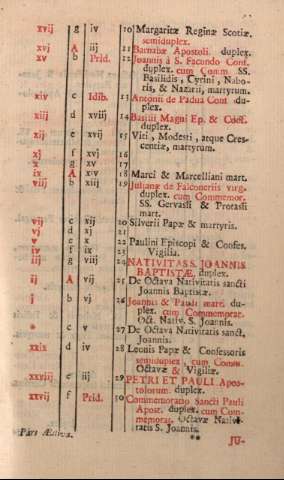 xvij g iv 10 Margaritæ Reginæ Scotiæ.
semiduplex.
xvj A iij 11 Barnabæ Apostoli. duplex.
xv b Prid. 12 Joannis à S. Facundo Conf.
duplex. cum Comm. SS.
Basilidis, Cyrini, Nabo-
ris, & Nazarii, martyrum.
xiv c Idib. 13 Antonii de Padua Conf du-
plex.
xiij d xviij 14 Basilii Magni Ep. & Conf.
duplex.
xij e xvij 15 Viti, Modesti, atque Cres-
centiæ, martyrum.
xj f xvj 16
x g xv 17
ix A xiv 18 Marci & Marcelliani mart.
viij b xiij 19 Julianæ de Falconeriis virg.
duplex. cum Commemor.
SS. Gervasii & Protasii
mart.
vij c xij 20 Silverii Papæ & martyris.
vj d xj 21
v e x 22 Paulini Episcopi & Confes.
iv f ix 23 Vigilia.
iij g viij 24 NATIVITAS S. JOANNIS
BAPTISTÆ, duplex.
ij A vij 25 De Octava Nativitatis sancti
Joannis Baptistæ.
j b vj 26 Joannis & Pauli mart. du-
plex. cum Commemorat.
Oct. Nativ. S. Joannis.
* c v 27 De Octava Nativitatis sanct.
Joannis.
xxix d iv 28 Leonis Papæ & Confessoris
semiduplex. cum Comm.
Octavæ & Vigiliæ.
xxviij e iij 29 PETRI ET PAULI Apos-
tolorum. duplex.
xxvij f Prid. 30 Commemoratio Sancti Pauli
Apost. duplex. cum Com-
memorat. Octavæ Nativi-
tatis S. Joannis.
Pars Æstiva. ** JU-